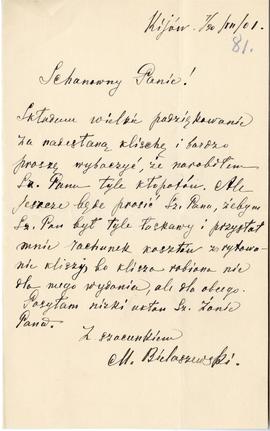 Kijów. 7/20/VII/01.
81.
Schanowny Panie!
Składam wielkie podziękowanie
za nadesłaną kliszę i bardzo
proszę wybaczyć, że narobiłem
Sz. Panu tyle kłopotów. Ale
jeszcze będę prosić Sz. Pana, żebym
Sz. Pan był tyle łaskawy i przysłał
mnie rachunek kosztów
kliszy, bo klisza robiona nie
dla mego wydania, ale dla obcego.
Posyłam nizki ukłon Sz. Żonie
Pana.
Z szacunkiem
M. Bielaszewski.